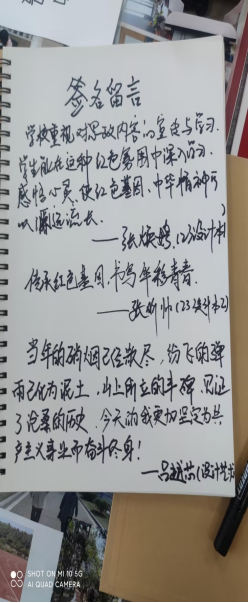 签名留言
学校重视对思政内容的宣传与学习.
学生能在这种红色氛围中深入学习.
感悟心灵.使红色基因.中华精神可
以源远流长.
——张焕婷(23设计本
传承红色基因,书写年轻青春.
——张昕帅(23设计本2)
当年的硝烟已经散尽,纷飞的弹
雨已化为泥土,山上所立的丰碑,见证
了沧桑的历史.今天的我更加坚定为共
产主义事业而奋斗终身!
SHOT ON MI 10 5G
AI QUAD CAMERA